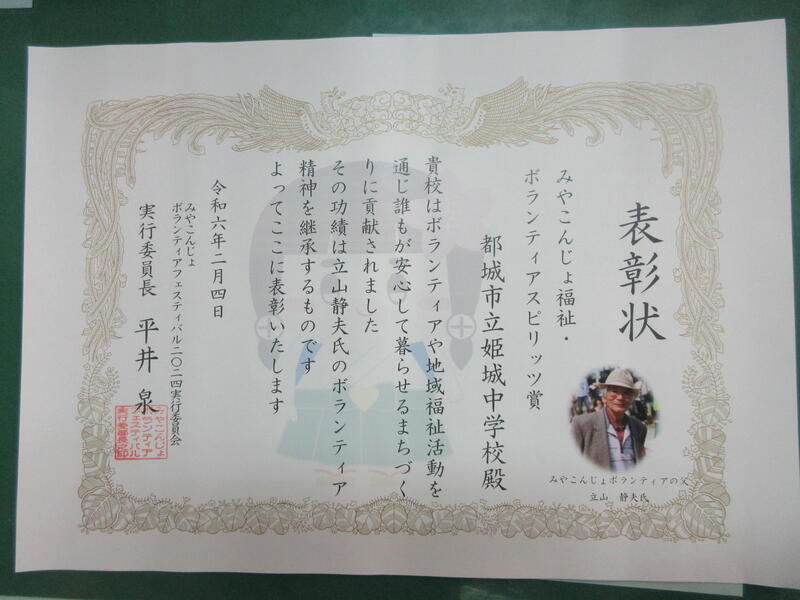 表彰状
みやこんじょ福祉・
ボランティアスピリッツ賞
都城市立姫城中学校殿
貴校はボランティアや地域福祉活動を
通じ誰もが安心して暮らせるまちづく
りに貢献されました
その功績は立山静夫氏のボランティア
精神を継承するものです
よってここに表彰いたします
令和六年二月四日
みやこんじょ
ボランティアフェスティバル二〇二四実行委員会
実行委員長 平井 泉
みやこんじょ
ボランティア
フェスティバル
実行委員長之印
みやこんじょボランティアの父
立山 静夫氏